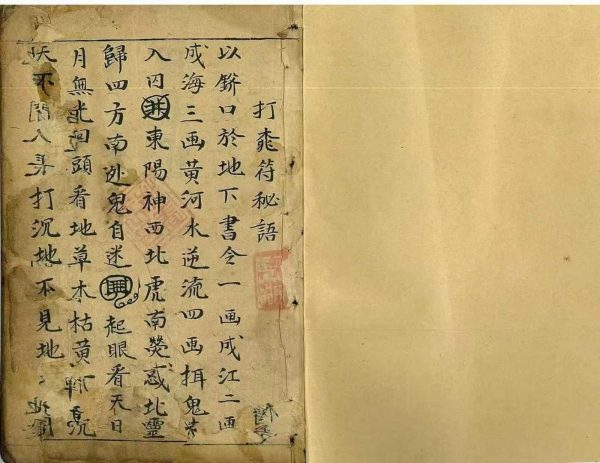 打䄻符秘語
以餅口於地下書令一画成江二画
成海三画黄河水逆流四画捐鬼
入囚井東陽神西北虎南熒惑北靈
歸四方南处鬼自迷 起眼看天日
月無光回頭看地草木枯黄
天不聞人 打沉地不見地